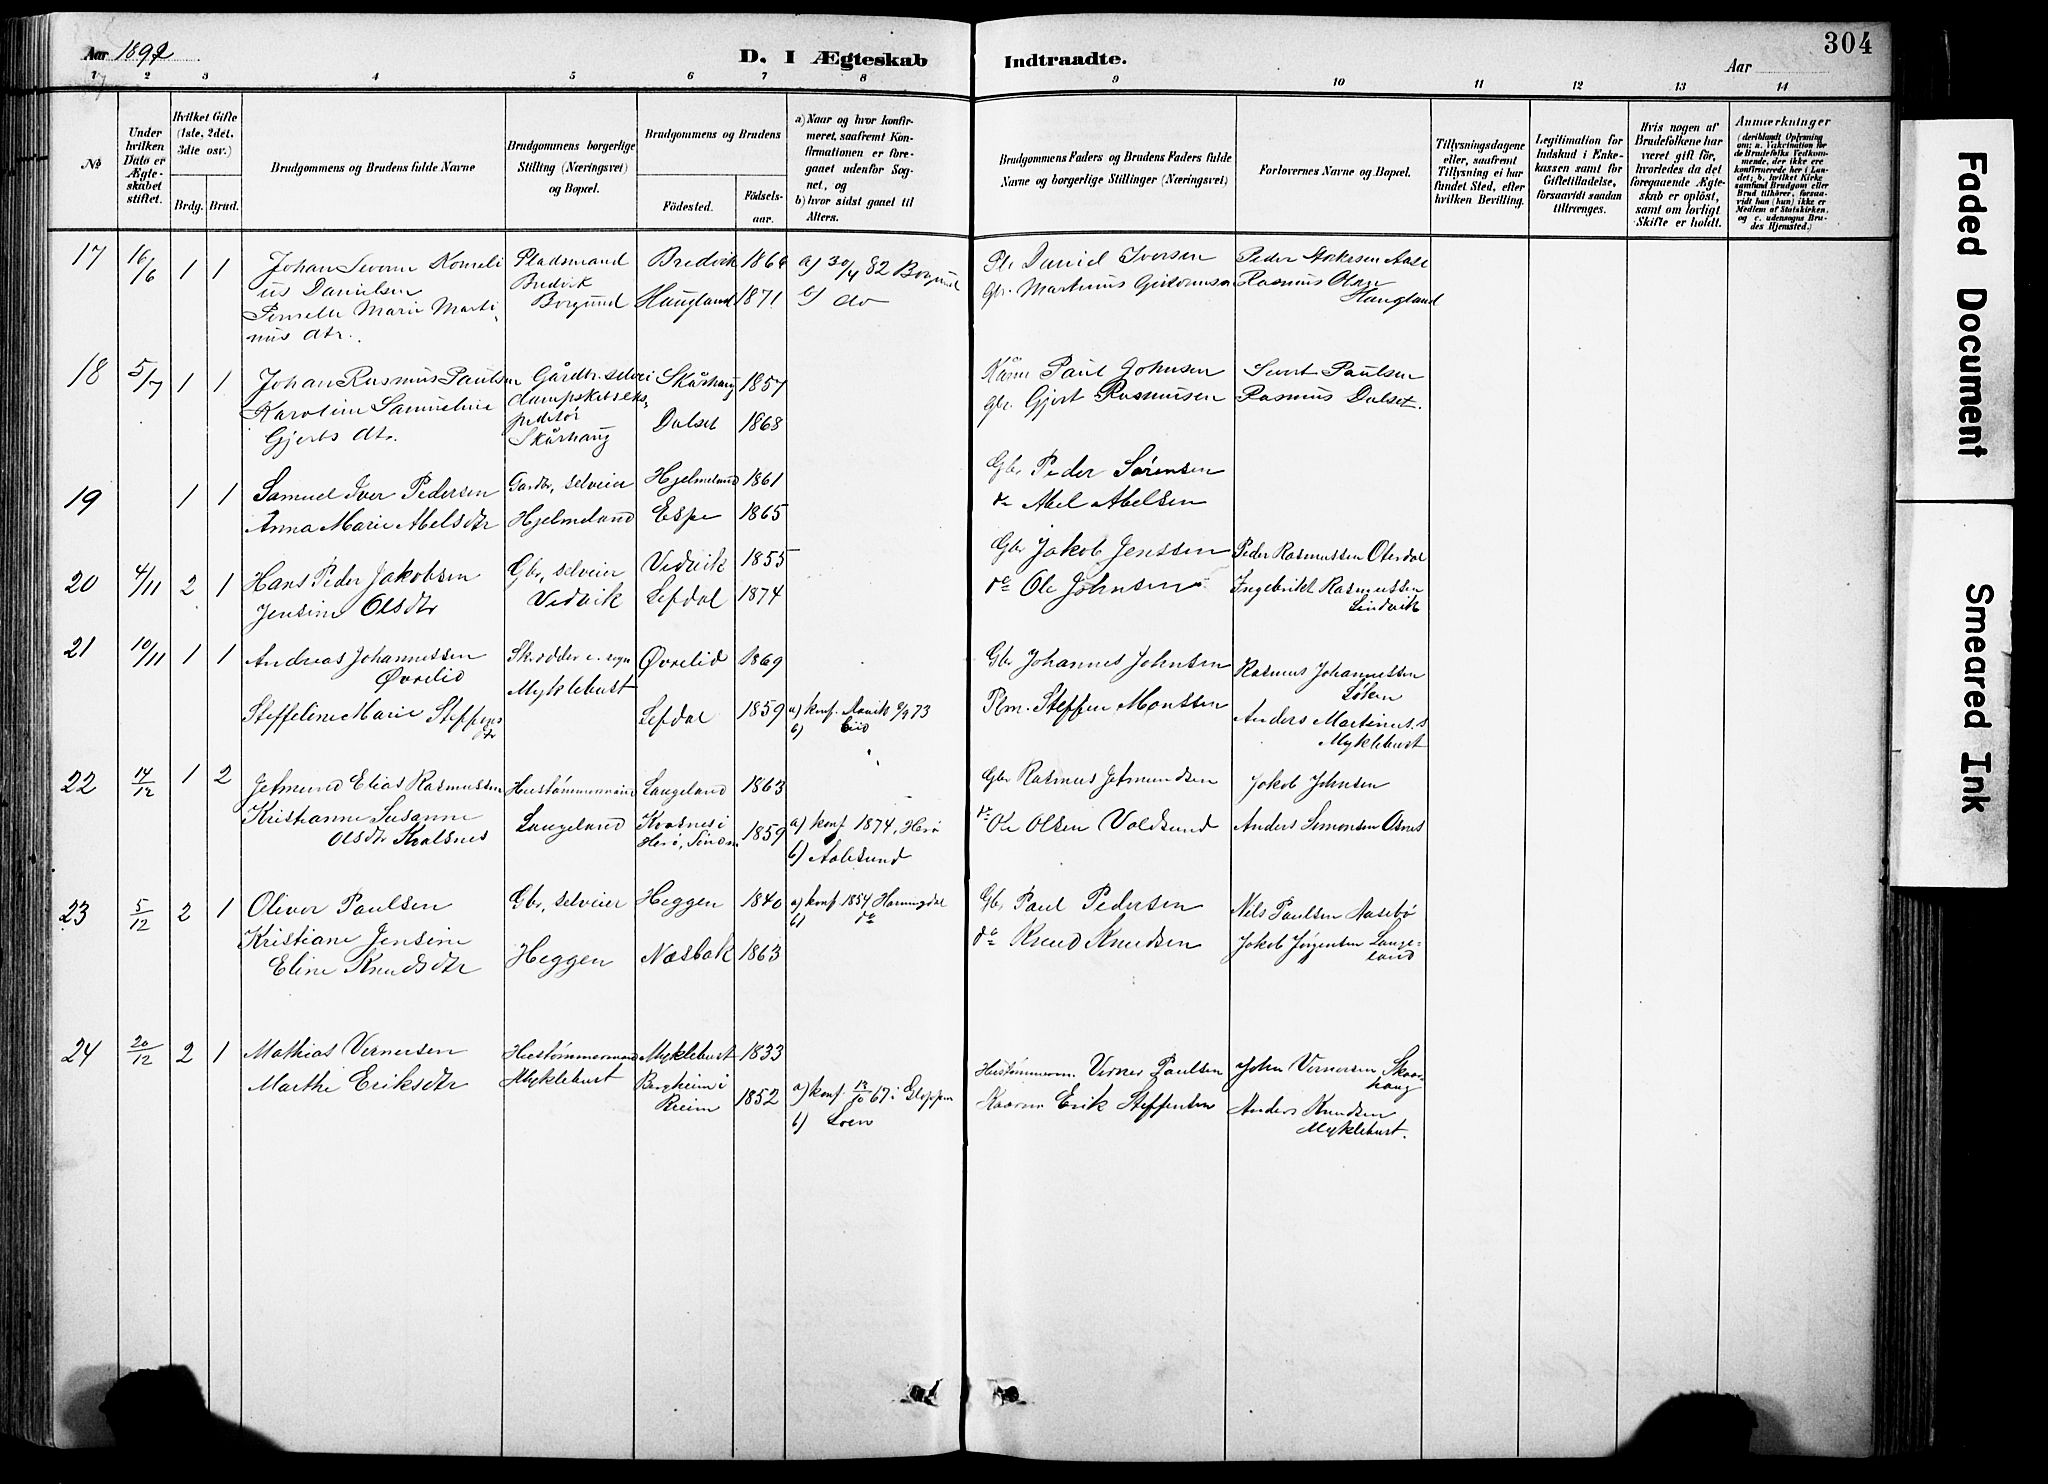 Aar 1892
D. I Ægteskab
Indtraadte.
Aar
304
1 2 3 4 5 6 7 8 9 10 11 12 13 14
№
Under hvilken Dato er Ægteskabet stiftet.
Hvilket Gifte (1ste, 2det, 3die osv.)
Brdg. Brud.
Brudgommens og Brudens fulde Navne
Brudgommens borgerlige Stilling (Næringsvei) og Bopæl.
Brudgommens og Brudens
Fødested.
Fødselsaar.
a) Naar og hvor konfirmeret, saafremt Konfirmationen er foregaaet udenfor Sognet, og
b) hvor sidst gaaet til Alters.
Brudgommens Faders og Brudens Faders fulde Navne og borgerlige Stillinger (Næringsvei)
Forlovernes Navne og Bopæl.
Tillysningsdagene eller, saafremt Tillysning ei har fundet Sted, efter hvilken Bevilling.
Legitimation for Indskud i Enkekassen samt for Giftetilladelse, forsaavidt saadan tiltrænges.
Hvis nogen af Brudefolkene har været gift før, hvorledes da det foregaaende Ægteskab er opløst, samt om lovligt Skifte er holdt.
Anmærkninger
(deriblandt Oplysning om: a. Vakcination for de Brudefolks Vedkommende, der ikke ere konfirmerede her i Landet; b. hvilket Kirkesamfund Brudgom eller Brud tilhører, forsaavidt han (hun) ikke er Medlem af Statskirken, og c. udensogns Brudes Hjemsted.)
17 16/6 1 1
Johan Severin Korneli
us Danielsen
Pernelle Marie Marti-
nus dtr.
Pladsmand
Bredvik
Borgund
Bredvik
Haugland 1871
a) 30/4 82 Borgund
b) do
Pl. Daniel Iversen
Gbr. Martinus
Rasmus
Haugland
18 5/7 1 1
Johan Rasmus Paulsen
Karoline Samueline
Gjerts dtr.
Gårdbr. selvei
dampskibseks-
peditør
Skårhaug
Skårhaug 1857
Dalset 1868
Kårm. Paul Johnsen
Gbr. Gjert Rasmusen
Sivert Paulsen
Rasmus Dalset.
19 1 1
Samuel Iver Pedersen
Anna Marie Abelsdtr
Gardbr, selveier
Hjelmeland
Hjelmeland 1861
Espe 1865
Gbr Peder Sørensen
do Abel Abelsen
20 4/11 2 1
Hans Peder Jakobsen
Jensine Olsdtr
Gbr, selveier
Vedvik
Vedvik 1855
Lefdal 1874
Gbr Jakob Jenssen
do Ole Johnsen
Peder Rasmussen Oterdal
Ingebrikt Rasmussen
Lindvik
21 10/11 1 1
Andreas Johannessen
Øvrelid
Steffeline Marie Steffens
dtr
Skrædder e. egn
Myklebust
Øvrelid 1869
Lefdal 1859
a) konf. Davik 9/9 73
b) Eid
Gbr Johannes Johnsen
Plm. Steffen Monssen
Rasmus Johannessen
Løken
Anders Martinus.s
Myklebust
22 14/12 1 2
Jetmund Elias Rasmussen
Kristianne Susanne
Olsdtr Kvalsnes
Hustømmermand
Langeland
Langeland 1863
1859
a) konf 1874, Herø
b) Aalesund
Gbr Rasmus Jetmundsen
do Ole Olsen Voldsund
Jakob Johnsen
Anders Simonsen Osnes
23 5/12 2 1
Oliver Paulsen
Kristiane Jensine
Eline Knudsdtr
Gbr, selveier
Heggen
Heggen 1840
Næsbak 1863
a) konf. 1854 Hornindal
b) do
Gbr Paul Pedersen
do Knud Knudsen
Nils Paulsen Aasebø
Jakob Jørgensen Lange-
land
24 20/12 2 1
Mathias Vernersen
Marthe Eriksdtr
Hustømmermand
Myklebust
Myklebust 1833
Bergheim i
1852
a) konf. 13/10 67 i Gloppen
b) Loen
Hustømmerm. Verner Paulsen
Kaarm Erik Steffensen
John Vernersen Skaar-
haug
Anders Knudsen
Myklebust.
Faded Document
Smeared Ink